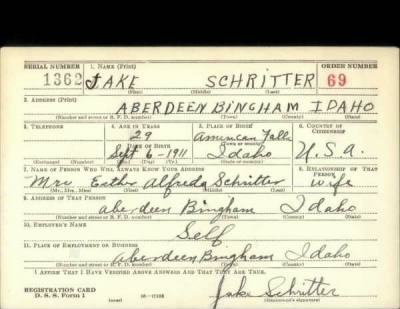 SERIAL NUMBER 1. NAME (Print) ORDER NUMBER
1362 JAKE SCHRITTER 69
(First) (Middle) (Last)
2. ADDRESS (Print)
ABERDEEN BINGHAM IDAHO
(Number and street or R. F. D. number) (Town) (County) (State)
3. TELEPHONE 4. AGE IN YEARS 5. PLACE OF BIRTH 6. COUNTRY OF CITIZENSHIP
29 American Falls
DATE OF BIRTH (Town or county)
Sept 6-1911 Idaho U.S.A.
(Exchange) (Number) (Mo.) (Day) (Yr.) (State or country)
7. NAME OF PERSON WHO WILL ALWAYS KNOW YOUR ADDRESS 8. RELATIONSHIP OF THAT PERSON
Mrs Esther Alfreda Schritter wife
(Mr., Mrs., Miss) (First) (Middle) (Last)
9. ADDRESS OF THAT PERSON
Aberdeen Bingham Idaho
(Number and street or R. F. D. number) (Town) (County) (State)
10. EMPLOYER'S NAME
Self
11. PLACE OF EMPLOYMENT OR BUSINESS
Aberdeen Bingham Idaho
(Number and street or R. F. D. number) (Town) (County) (State)
I AFFIRM THAT I HAVE VERIFIED ABOVE ANSWERS AND THAT THEY ARE TRUE.
REGISTRATION CARD
D. S. S. Form 1 Jake Schritter
(Registrant's signature)